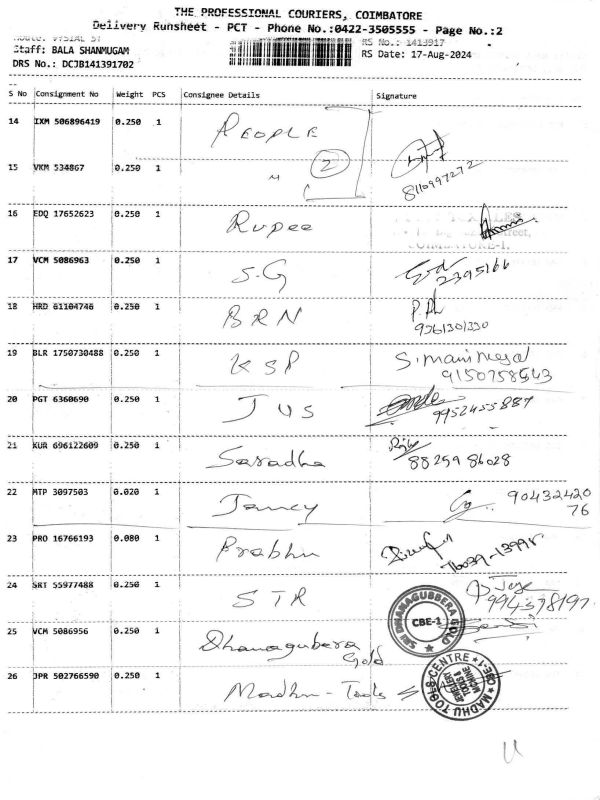 THE PROFESSIONAL COURIERS, COIMBATORE
Delivery Runsheet - PCT - Phone No.:0422-3505555 - Page No.:2
Staff: BALA SHANMUGAM
DRS No.: DCJB141391702
RS No.: 1413917
RS Date: 17-Aug-2024
S No Consignment No Weight PCS Consignee Details Signature
14 IXM 506896419 0.250 1 PEOPLE
15 VKM 534867 0.250 1 " 2 8110997272
16 EDQ 17652623 0.250 1 Rupee
COIMBATORE-1.
17 VCM 5086963 0.250 1 S.G 2395166
18 HRD 61104746 0.250 1 BRN
19 BLR 1750730488 0.250 1 KSP
9150758543
20 PGT 6360690 0.250 1 JUS 9952455887
21 KUR 696122609 0.250 1 Saradha 88259 86028
22 MTP 3097503 0.020 1 Jancy 90432420
76
23 PRO 16766193 0.080 1 Prabhu
24 SRT 55977488 0.250 1 STR
25 VCM 5086956 0.250 1 Dhanagubera
Gold
SRI DHANAGUBBERA GOLD
CBE-1
26 JPR 502766590 0.250 1 Madhu - Tools
MADHU TOOLS CENTRE
CBE-1
JEWELERY
TOOLS &
MACHINE